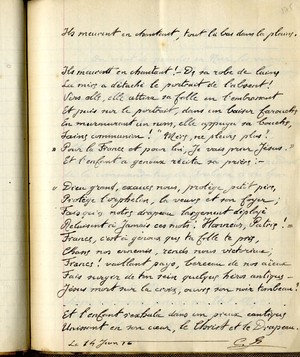 Ils meurent en chantant, tout là bas dans la plaine.
Ils meurent en chantant! - De sa robe de
La mère a détaché le portrait de l'absent!
Vers elle, elle attire sa fille en l'embrassant
Et puis sur le portrait, dans un baiser farouche
En murmurant un nom, elle appuya sa bouche,
Sainte communion! " Mère, ne pleure plus!
" Pour la France et pour lui, je vais prier Jésus. "
Et l'enfant à genoux récita sa prière: -
" Dieu grand, exauce nous, protège petit père,
Protège l'orphelin, la veuve et son foyer;
Fais qu'en notre drapeau largement déployé
Reluisent à jamais ces mots: Honneur, Patrie!
France, c'est à genoux que ta fille te prie,
Chasse nos ennemis, rends nous victorieux;
France! vaillant pays, berceau de nos aïeux
Fais surgir de ton sein quelques héros antiques -
Jésus mort sur la croix, ouvre son noir tombeau!
Et l'enfant dans un pieux cantique
Unissent en son cœur, le Christ et le Drapeau.
Le 14 Juin 16